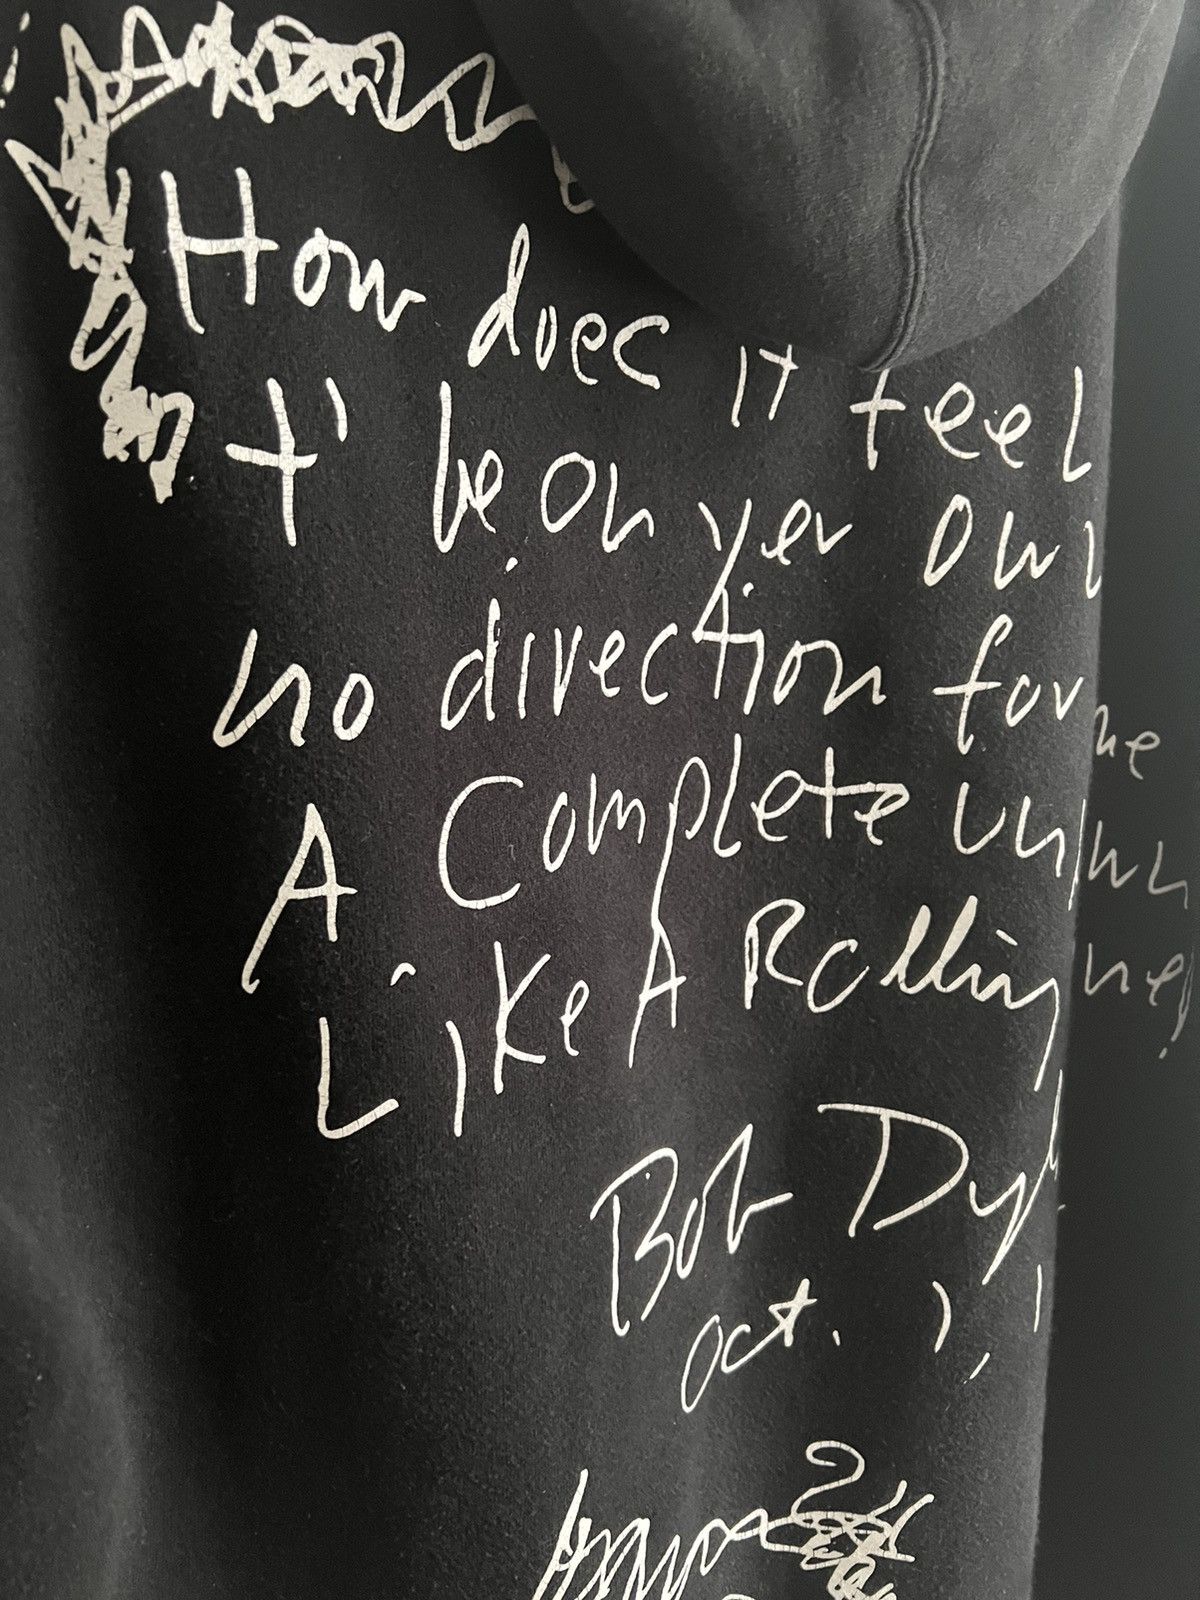 How does it feel
t' be on yer own
no direction home
A Complete unknown
Like A Rolling
Bob Dyl
oct. 1, 1
2